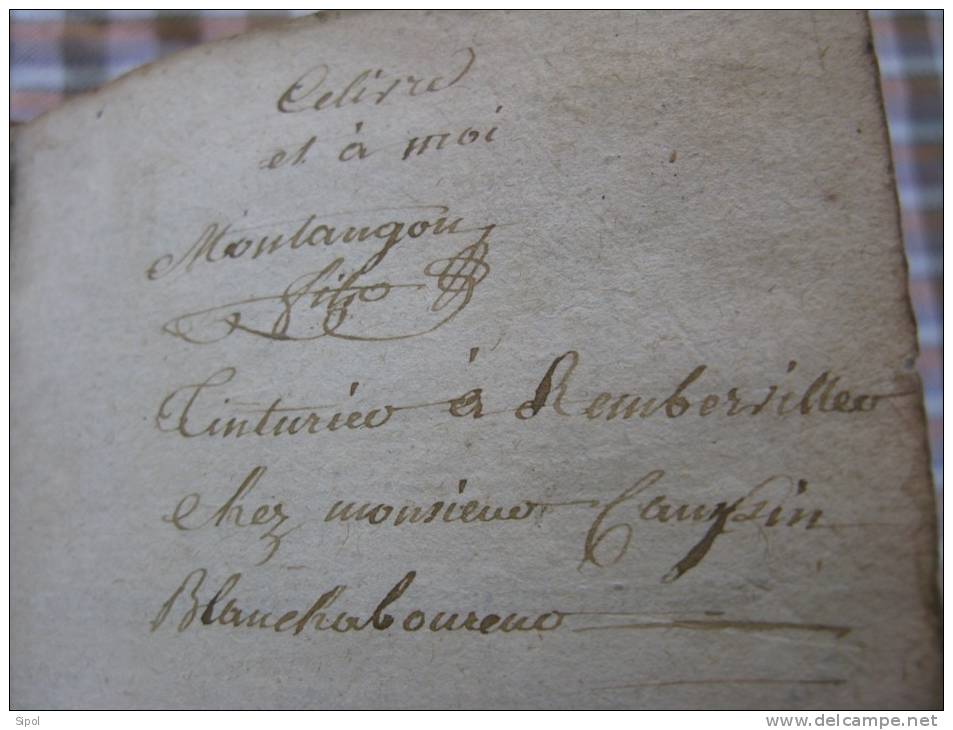 Celivre
et à moi
Montangon
fils
Tinturier à Remberviller
chez monsieur
Blanchaboureur
Sipol
www.delcampe.net